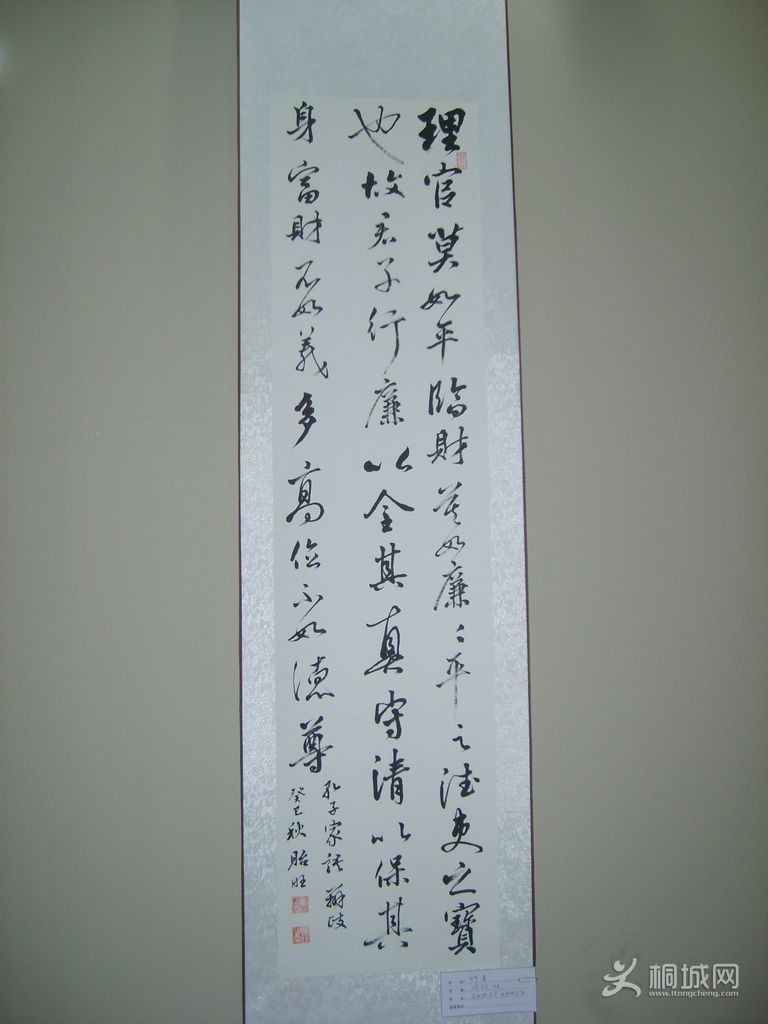 理官莫如平臨財莫如廉〻平之法吏之寶
也故君子行廉以全其真守清以保其
身富財不如義多高位不如德尊
孔子家語辯政
癸巳秋 胎旺
桐城网
www.itongcheng.com